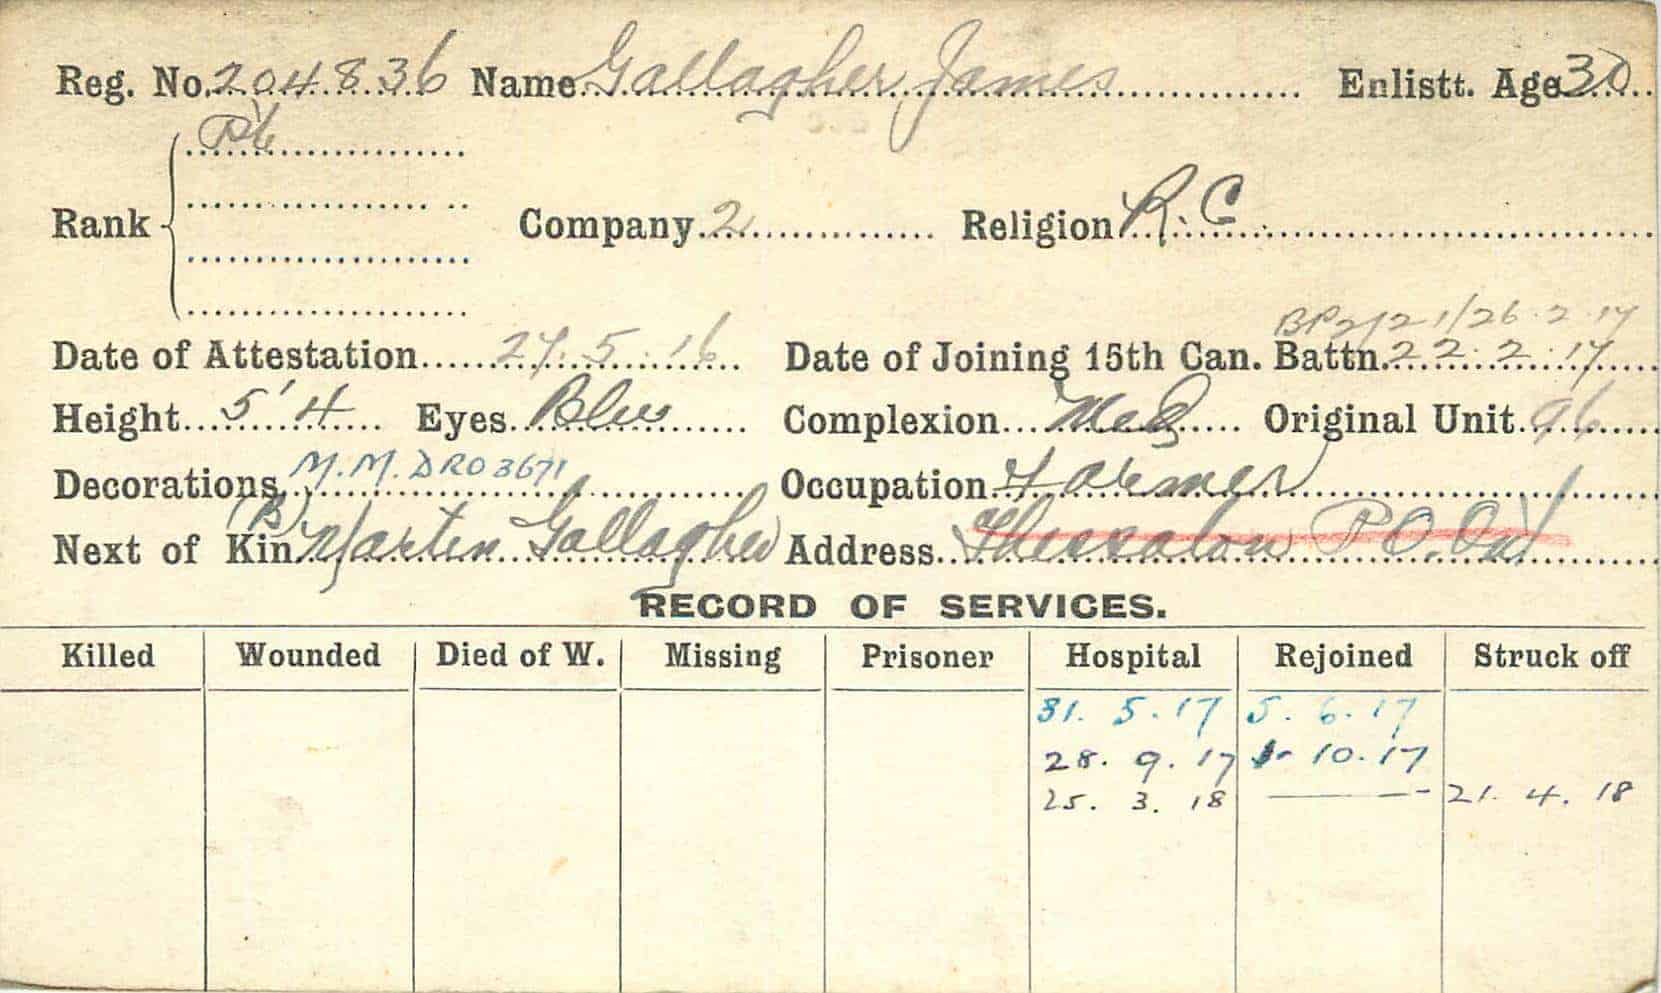 Reg. No. 204836 Name Gallagher James Enlistt. Age 30
Pte
Rank Company 2 Religion R.C
BP2/21/26.2.17
Date of Attestation 27.5.16 Date of Joining 15th Can. Battn. 22.2.17
Height 5'4 Eyes Blue Complexion Med Original Unit 96
Decorations M.M. DRO 3671 Occupation Farmer
Next of Kin (B) Martin Gallagher Address Thessalon P.O. Ont
RECORD OF SERVICES.
Killed Wounded Died of W. Missing Prisoner Hospital Rejoined Struck off
31. 5. 17 5. 6. 17
28. 9. 17 1- 10. 17
25. 3. 18 — 21. 4. 18